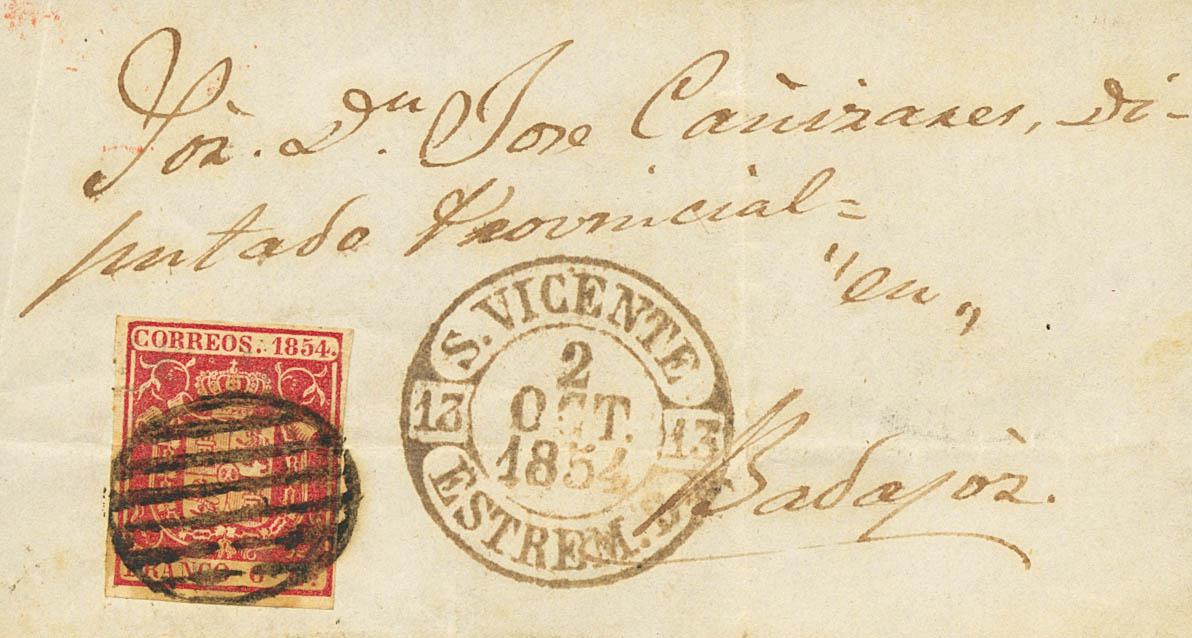 Sör. D.ⁿ Jose Cañizares, Di-
putado Provincial=
"en„
Badajòz.
CORREOS. 1854.
FRANCO. 6 C.S
S. VICENTE
2
OCT.
1854
13 13
ESTREM.